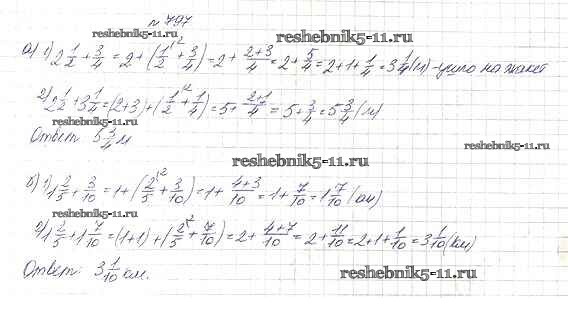 № 797
reshebnik5-11.ru
а) 1) 2 1/2 + 3/4 = 2 + (1/2^2 + 3/4) = 2 + (2+3)/4 = 2 + 5/4 = 2+1+1/4 = 3 1/4 (м) - ушло на жакет
reshebnik5-11.ru
2) 2 1/2 + 3 1/4 = (2+3) + (1/2^2 + 1/4) = 5 + (2+1)/4 = 5 + 3/4 = 5 3/4 (м)
reshebnik5-11.ru
Ответ 5 3/4 м
reshebnik5-11.ru
reshebnik5-11.ru
б) 1) 1 2/5 + 3/10 = 1 + (2/5^2 + 3/10) = 1 + (4+3)/10 = 1 + 7/10 = 1 7/10 (км)
reshebnik5-11.ru
2) 1 2/5 + 1 7/10 = (1+1) + (2/5^2 + 7/10) = 2 + (4+7)/10 = 2 + 11/10 = 2+1+1/10 = 3 1/10 (км)
Ответ 3 1/10 км.
reshebnik5-11.ru